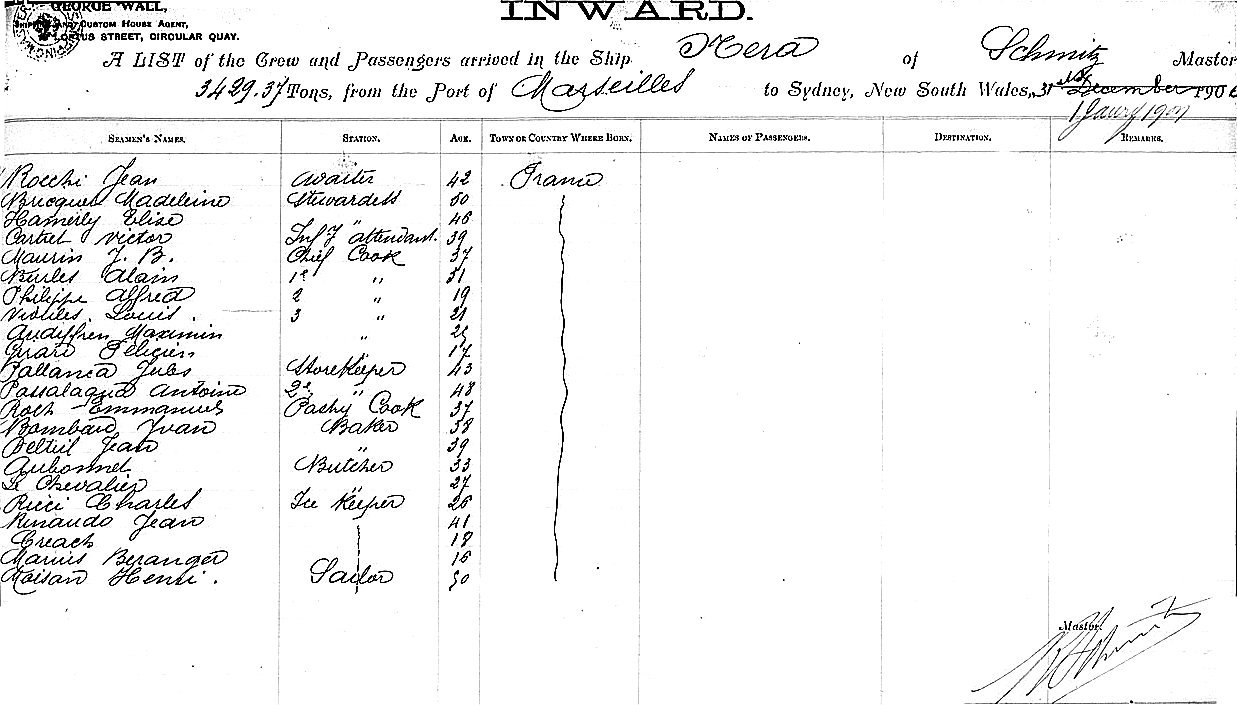 GEORGE WALL,
SHIPPING AND CUSTOM HOUSE AGENT,
LOFTUS STREET, CIRCULAR QUAY.
INWARD.
A LIST of the Crew and Passengers arrived in the Ship Nera of Schmitz Master
3429.37 Tons, from the Port of Marseilles to Sydney, New South Wales, 31st December 1906
1 Jany 1907
SEAMEN'S NAMES. STATION. AGE. TOWN OR COUNTRY WHERE BORN. NAMES OF PASSENGERS. DESTINATION. REMARKS.
Rocchi Jean Waiter 42 France
Bucques Madeleine Stewardess 50
Hamerly Elise " 46
Cartret Victor attendant. 39
Maurin J. B. Chief Cook 37
Burles Alain 1e " 31
Philippe Alfred 2 " 19
Louis. 3 " 21
Audiffren Maximin "
Girard Felicien " 17
Pallanca Jules Storekeeper 43
Passalaqua Antoine 2e " 48
Roch Emmanuel Pastry Cook 37
Bombard Ivan Baker 38
Jean " 39
Aubonnet Butcher 33
Le Chevalier " 27
Ricci Charles Ice Keeper 26
Rinaudo Jean 41
Creach 18
Marius Beranger 16
Moisan Henri. Sailor 30
Master.